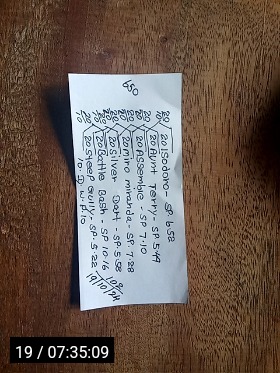 650
20 Isodoro - SP. 6.52
20 Aunt Terry - SP. 5.49
20 Assemble - SP 7.10
20 Miro miranda - SP. 7.28
20 Silver Dart - SP. 5.58
20 Battle Bash - SP 10.16
20 Steep Gully - SP. 5.22
10. D. W. P. 10
19/10/24
19 / 07:35:09